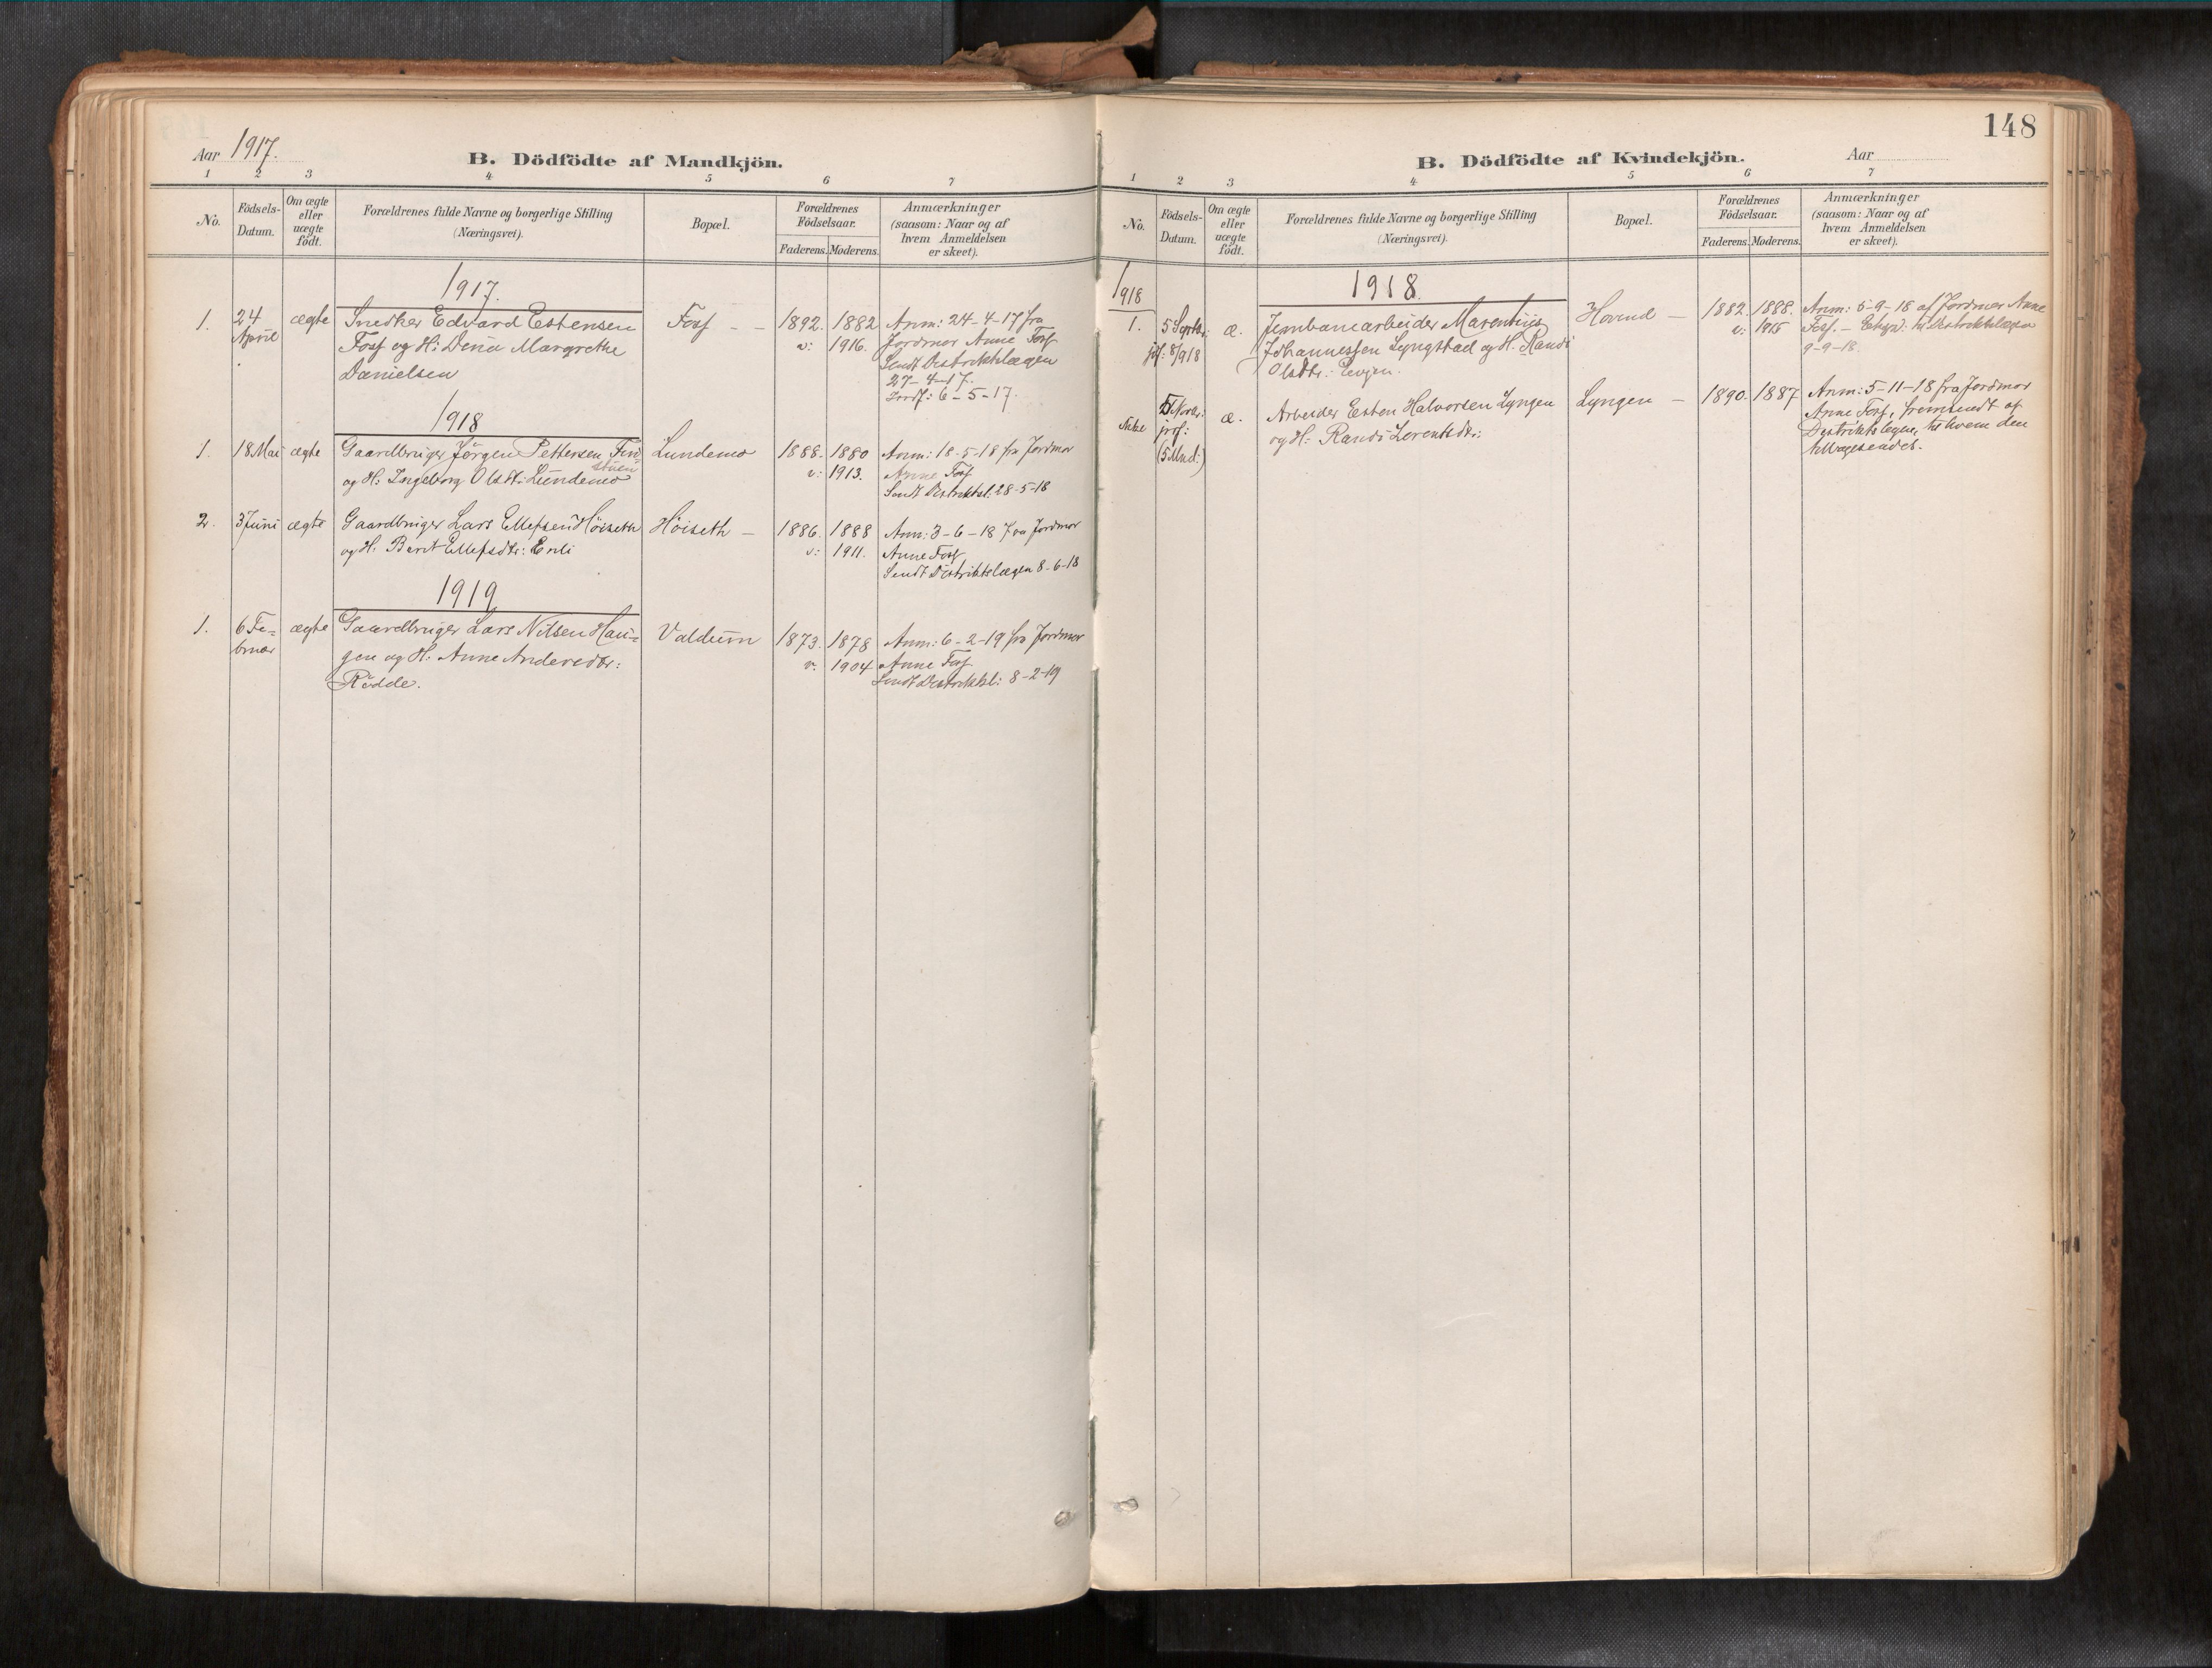 Aar 1917.
B. Dödfödte af Mandkjön.
1 2 3 4 5 6 7
No.
Födsels-
Datum.
Om ægte
eller
uægte
födt.
Forældrenes fulde Navne og borgerlige Stilling
(Næringsvei).
Bopæl.
Forældrenes
Födselsaar.
Faderens. Moderens.
Anmærkninger
(saasom: Naar og af
hvem Anmeldelsen
er skeet).
1917.
1. 24 April ægte Snedker Edvard Estensen Foss - - 1892. 1882 Anm: 24-4-17 fra
Foss og H: Dena Margrethe v: 1916. Jordmor Anne Foss
Danielsen Sendt Distriktslægen
27-4-17.
6-5-17.
1918
1. 18 Mai ægte Gaardbruger Jörgen Pettersen Fin Lundemo 1888. 1880 Anm: 18-5-18 fra Jordmor
og H: Ingeborg Olsdt: Lundemo v: 1913. Anne Foss
Sendt Distriktsl: 28-5-18
2. 3 Juni ægte Gaardbruger Lars Ellefsen Höiseth Höiseth - 1886. 1888 Anm: 3-6-18 fra Jordmor
og H: Berit Ellefsdtr: Enli v: 1911. Anne Foss
Sendt Distriktslægen 8-6-18
1919
1. 6 Fe- ægte Gaardbruger Lars Nilsen Hau- Valdum 1873. 1878 Anm: 6-2-19 fra Jordmor
bruar gen og H: Anne Andersdtr: v: 1904 Anne Foss
Rödde. Sendt Distriktsl: 8-2-19
148
B. Dödfödte af Kvindekjön.
Aar
1 2 3 4 5 6 7
No.
Födsels-
Datum.
Om ægte
eller
uægte
födt.
Forældrenes fulde Navne og borgerlige Stilling
(Næringsvei).
Bopæl.
Forældrenes
Födselsaar.
Faderens. Moderens.
Anmærkninger
(saasom: Naar og af
hvem Anmeldelsen
er skeet).
1918 1918.
1. 5 Septbr: æ. Jernbanearbeider Marentius Hovind - 1882. 1888. Anm: 5-9-18 af Jordmor Anne
8/918 Johannessen Lyngstad og H. Randi v: 1915 Foss - til Distriktslægen
Olsdtr: Evjen. 9-9-18.
5 Novbr: æ. Arbeider Esten Halvorsen Lyngen Lyngen - 1890. 1887 Anm: 5-11-18 fra Jordmor
og H: Randi Lorentsdtr: Anne Foss, fremsendt af
(5 Mnd:) Distriktslegen, til hvem den
tilbagesendes.